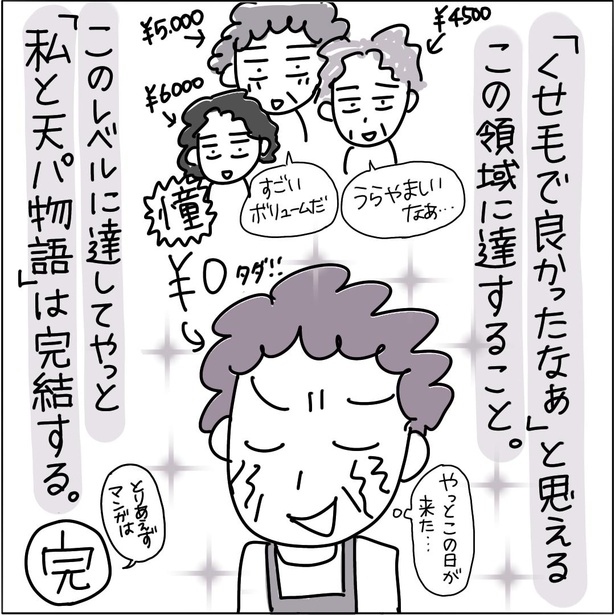 「くせ毛で良かったなぁ」と思える
この領域に達すること。
¥4500
¥5.000
¥6000
うらやましい
なぁ…
すごい
ボリュームだ
憧
¥0
タダ!!
やっとこの日が
来た…
このレベルに達してやっと
「私と天パ物語」は完結する。
とりあえず
マンガは
完